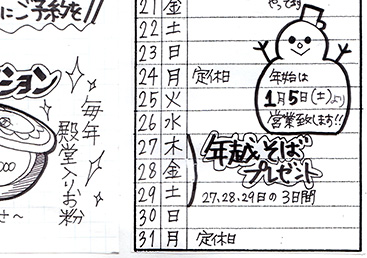 にご予約を!!
ション
毎年
殿堂入りお粉
せ～
21 金
22 土
23 日
24 月 定休日
25 火
26 水
27 木
28 金
29 土
30 日
31 月 定休日
年始は
1月5日(土)より
営業致します!!
年越しそば
プレゼント
27.28.29日の3日間